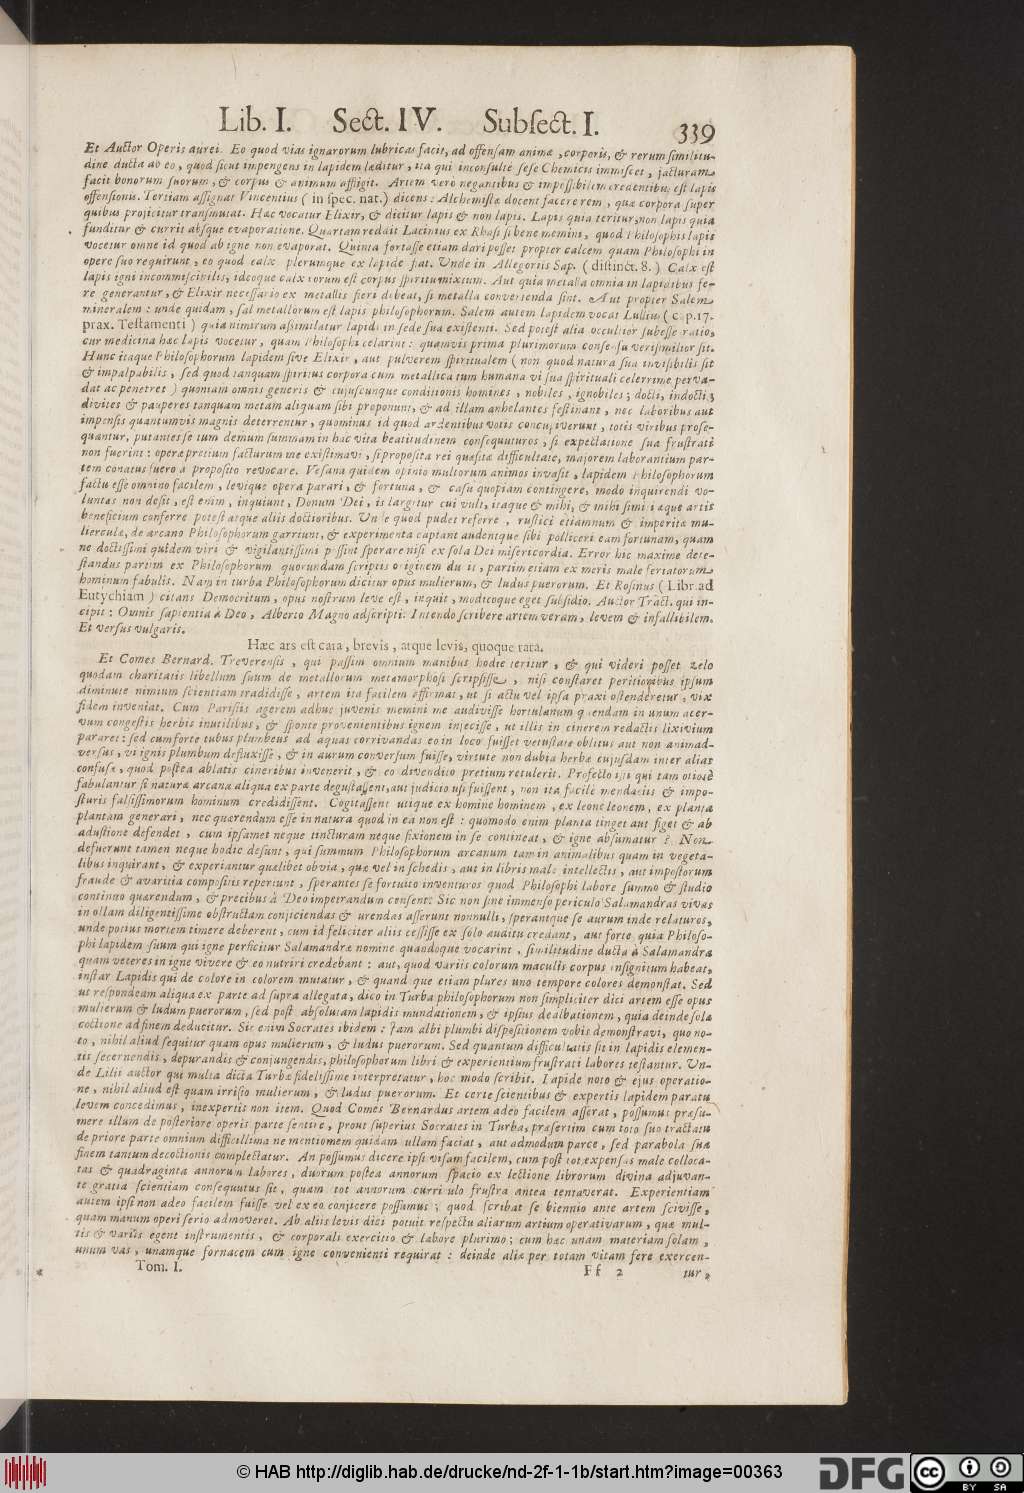 Lib. I. Sect. IV. Subſect. I. 339
Et Auctor Operis aurei. Eo quod vias ignarorum lubricas facit, ad offenſam animæ, corporis, & rerum ſimilitu-
dine ducta ab eo, quod ſicut impengens in lapidem læditur, ita qui inconſulte ſeſe Chemicis immiſcet, jacturam
facit bonorum ſuorum, & corpus & animum affligit. Artem vero negantibus & impoſſibilem credentibus eſt lapis
offenſionis. Tertiam aſſignat Vincentius (in ſpec. nat.) dicens: Alchemiſtæ docent facere rem, quæ corpora ſuper
quibus projicitur tranſmutat. Hæc vocatur Elixir, & dicitur lapis & non lapis. Lapis quia teritur, non lapis quia
funditur & currit absque evaporatione. Quartam reddit Lacinius ex Rhaſi ſi bene memini, quod Philoſophis lapis
vocetur omne id quod ab igne non evaporat. Quinta fortaſſe etiam dari poſſet propter calcem quam Philoſophi in
opere ſuo requirunt, eo quod calx plerumque ex lapide fiat. Unde in Allegoriis Sap. (diſtinct. 8.) Calx eſt
lapis igni incommiſcibilis, ideoque calx eorum eſt corpus ſpiritu mixtum. Aut quia metalla omnia in lapidibus fe-
re generantur, & Elixir neceſſario ex metallis fieri debeat, ſi metalla convertenda ſint. Aut propter Salem
mineralem: unde quidam, ſal metallorum eſt lapis philoſophorum. Salem autem lapidem vocat Lullius (cap. 17.
prax. Teſtamenti) quia nimirum aſſimilatur lapidi in ſede ſua exiſtenti. Sed poteſt alia occultior ſubeſſe ratio,
cur medicina hæc lapis vocetur, quam Philoſophi celarint: quamvis prima plurimorum conſenſu veriſimilior ſit.
Hunc itaque Philoſophorum lapidem ſive Elixir, aut pulverem ſpiritualem (non quod natura ſua inviſibilis ſit
& impalpabilis, ſed quod tanquam ſpiritus corpora cum metallica tum humana vi ſua ſpirituali celerrime perva-
dat ac penetret) quoniam omnis generis & cujuſcunque conditionis homines, nobiles, ignobiles; docti, indocti;
divites & pauperes tanquam metam aliquam ſibi proponunt, & ad illam anhelantes feſtinant, nec laboribus aut
impenſis quantumvis magnis deterrentur, quominus id quod ardentibus votis concupiverunt, totis viribus proſe-
quantur, putantes ſe tum demum ſummam in hac vita beatitudinem conſequuturos, ſi expectatione ſua fruſtrati
non fuerint: operæpretium facturum me exiſtimavi, ſi propoſita rei quæſitæ difficultate, majorem laborantium par-
tem conatus fuero a propoſito revocare. Veſana quidem opinio multorum animos invaſit, lapidem Philoſophorum
factu eſſe omnino facilem, levique opera parari, & fortuna, & caſu quopiam contingere, modo inquirendi vo-
luntas non deſit, eſt enim, inquiunt, Donum Dei, is largitur cui vult, itaque & mihi, & mihi ſimili æque artis
beneficium conferre poteſt atque aliis doctioribus. Unde quod pudet referre, ruſtici etiamnum & imperitæ mu-
lierculæ, de arcano Philoſophorum garriunt, & experimenta captant audentque ſibi polliceri eam fortunam, quam
ne doctiſſimi quidem viri & vigilantiſſimi poſſint ſperare niſi ex ſola Dei miſericordia. Error hic maxime dete-
ſtandus partim ex Philoſophorum quorundam ſcriptis originem duxit, partim etiam ex meris male feriatorum
hominum fabulis. Nam in turba Philoſophorum dicitur opus mulierum, & ludus puerorum. Et Roſinus (Libr. ad
Eutychiam) citans Democritum, opus noſtrum leve eſt, inquit, modicoque eget ſubſidio. Auctor Tract. qui in-
cipit: Omnis ſapientia à Deo, Alberto Magno adſcripti: Intendo ſcribere artem veram, levem & infallibilem.
Et verſus vulgaris.
Hæc ars eſt cara, brevis, atque levis, quoque rara.
Et Comes Bernard. Treverenſis, qui paſſim omnium manibus hodie teritur, & qui videri poſſet zelo
quodam charitatis libellum ſuum de metallorum metamorphoſi ſcripſiſſe, niſi conſtaret peritioribus ipſum
diminute nimium ſcientiam tradidiſſe, artem ita facilem affirmat, ut ſi actu vel ipſa praxi oſtenderetur, vix
fidem inveniat. Cum Pariſiis agerem adhuc juvenis memini me audiviſſe hortulanum quendam in unum acer-
vum congeſtis herbis inutilibus, & ſponte provenientibus ignem injeciſſe, ut illis in cinerem redactis lixivium
pararet: ſed cum forte tubus plumbeus ad aquas corrivandas eo in loco fuiſſet vetuſtate oblitus aut non animad-
verſus, vi ignis plumbum defluxiſſe, & in aurum converſum fuiſſe, virtute non dubia herbæ cujuſdam inter alias
confuſæ, quod poſtea ablatis cineribus invenerit, & eo divendito pretium retulerit. Profecto iſti qui tam otioſè
fabulantur ſi naturæ arcana aliqua ex parte deguſtaſſent, aut judicio uſi fuiſſent, non ita facilè mendaciis & impo-
ſturis falſiſſimorum hominum credidiſſent. Cogitaſſent utique ex homine hominem, ex leone leonem, ex planta
plantam generari, nec quærendum eſſe in natura quod in ea non eſt: quomodo enim planta tinget aut figet & ab
aduſtione defendet, cum ipſamet neque tincturam neque fixionem in ſe contineat, & igne abſumatur? Non
defuerunt tamen neque hodie deſunt, qui ſummum Philoſophorum arcanum tam in animalibus quam in vegeta-
libus inquirant, & experiantur quælibet obvia, quæ vel in ſchedis, aut in libris male intellectis, aut impoſtorum
fraude & avaritia compoſitis reperiunt, ſperantes ſe fortuito inventuros quod Philoſophi labore ſummo & ſtudio
continuo quærendum, & precibus à Deo impetrandum cenſent: Sic non ſine immenſo periculo Salamandras vivas
in ollam diligentiſſime obſtructam conjiciendas & urendas aſſerunt nonnulli, ſperantque ſe aurum inde relaturos,
unde potius mortem timere deberent, cum id feliciter aliis ceſſiſſe ex ſolo auditu credant, aut forte quia Philoſo-
phi lapidem ſuum qui igne perficitur Salamandræ nomine quandoque vocarint, ſimilitudine ducta à Salamandra
quam veteres in igne vivere & eo nutriri credebant: aut, quod variis colorum maculis corpus inſignitum habeat,
inſtar Lapidis qui de colore in colorem mutatur, & quandoque etiam plures uno tempore colores demonſtat. Sed
ut reſpondeam aliqua ex parte ad ſupra allegata, dico in Turba philoſophorum non ſimpliciter dici artem eſſe opus
mulierum & ludum puerorum, ſed poſt abſolutam lapidis mundationem, & ipſius dealbationem, quia deinde ſola
coctione ad finem deducitur. Sic enim Socrates ibidem: Jam albi plumbi diſpoſitionem vobis demonſtravi, quo no-
to, nihil aliud ſequitur quam opus mulierum, & ludus puerorum. Sed quantum difficultatis ſit in lapidis elemen-
tis ſecernendis, depurandis & conjungendis, philoſophorum libri & experientium fruſtrati labores teſtantur. Un-
de Lilii auctor qui multa dicta Turbæ fideliſſime interpretatur, hoc modo ſcribit. Lapide noto & ejus operatio-
ne, nihil aliud eſt quam irriſio mulierum, & ludus puerorum. Et certe ſcientibus & expertis lapidem paratu
levem concedimus, inexpertis non item. Quod Comes Bernardus artem adeo facilem aſſerat, poſſumus præſu-
mere illum de poſteriore operis parte ſentire, prout ſuperius Socrates in Turba, præſertim cum toto ſuo tractatu
de priore parte omnium difficillima ne mentionem quidam ullam faciat, aut admodum parce, ſed parabola ſua
finem tantum decoctionis complectatur. An poſſumus dicere ipſi viſam facilem, cum poſt tot expenſas male colloca-
tas & quadraginta annorum labores, duorum poſtea annorum ſpacio ex lectione librorum divina adjuvan-
te gratia ſcientiam conſequutus ſit, quam tot annorum curriculo fruſtra antea tentaverat. Experientiam
autem ipſi non adeo facilem fuiſſe vel ex eo conjicere poſſumus; quod ſcribat ſe biennio ante artem ſciviſſe,
quam manum operi ſerio admoveret. Ab aliis levis dici potuit reſpectu aliarum artium operativarum, quæ mul-
tis & variis egent inſtrumentis, & corporali exercitio & labore plurimo; cum hæc unam materiam ſolam,
unum vas, unamque fornacem cum igne convenienti requirat: deinde aliæ per totam vitam fere exercen-
Tom. I. Ff 2 tur,
© HAB http://diglib.hab.de/drucke/nd-2f-1-1b/start.htm?image=00363
DFG
cc BY SA